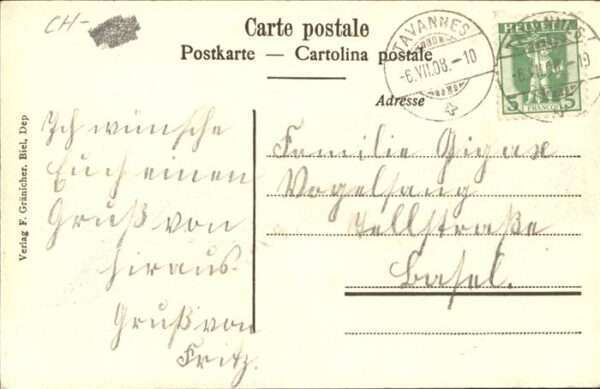 CH-
Carte postale
Postkarte — Cartolina postale
Adresse
TAVANNES
-6.VII.08.-10
HELVETIA
5 FRANCO 5
Ich wünsche
Euch einen
Gruß von
hiraus.
Gruß von
Fritz.
Familie Gigax
Vogelsang
Tellstraße
Basel.
Verlag F. Gränicher, Biel, Dep